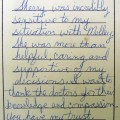 Sherry was incredibly
sensitive to my
situation with Molly.
She was more than
helpful, caring and
supportive of my
decisions. I want to
thank the doctor for their
knowledge and compassion.
You have my trust